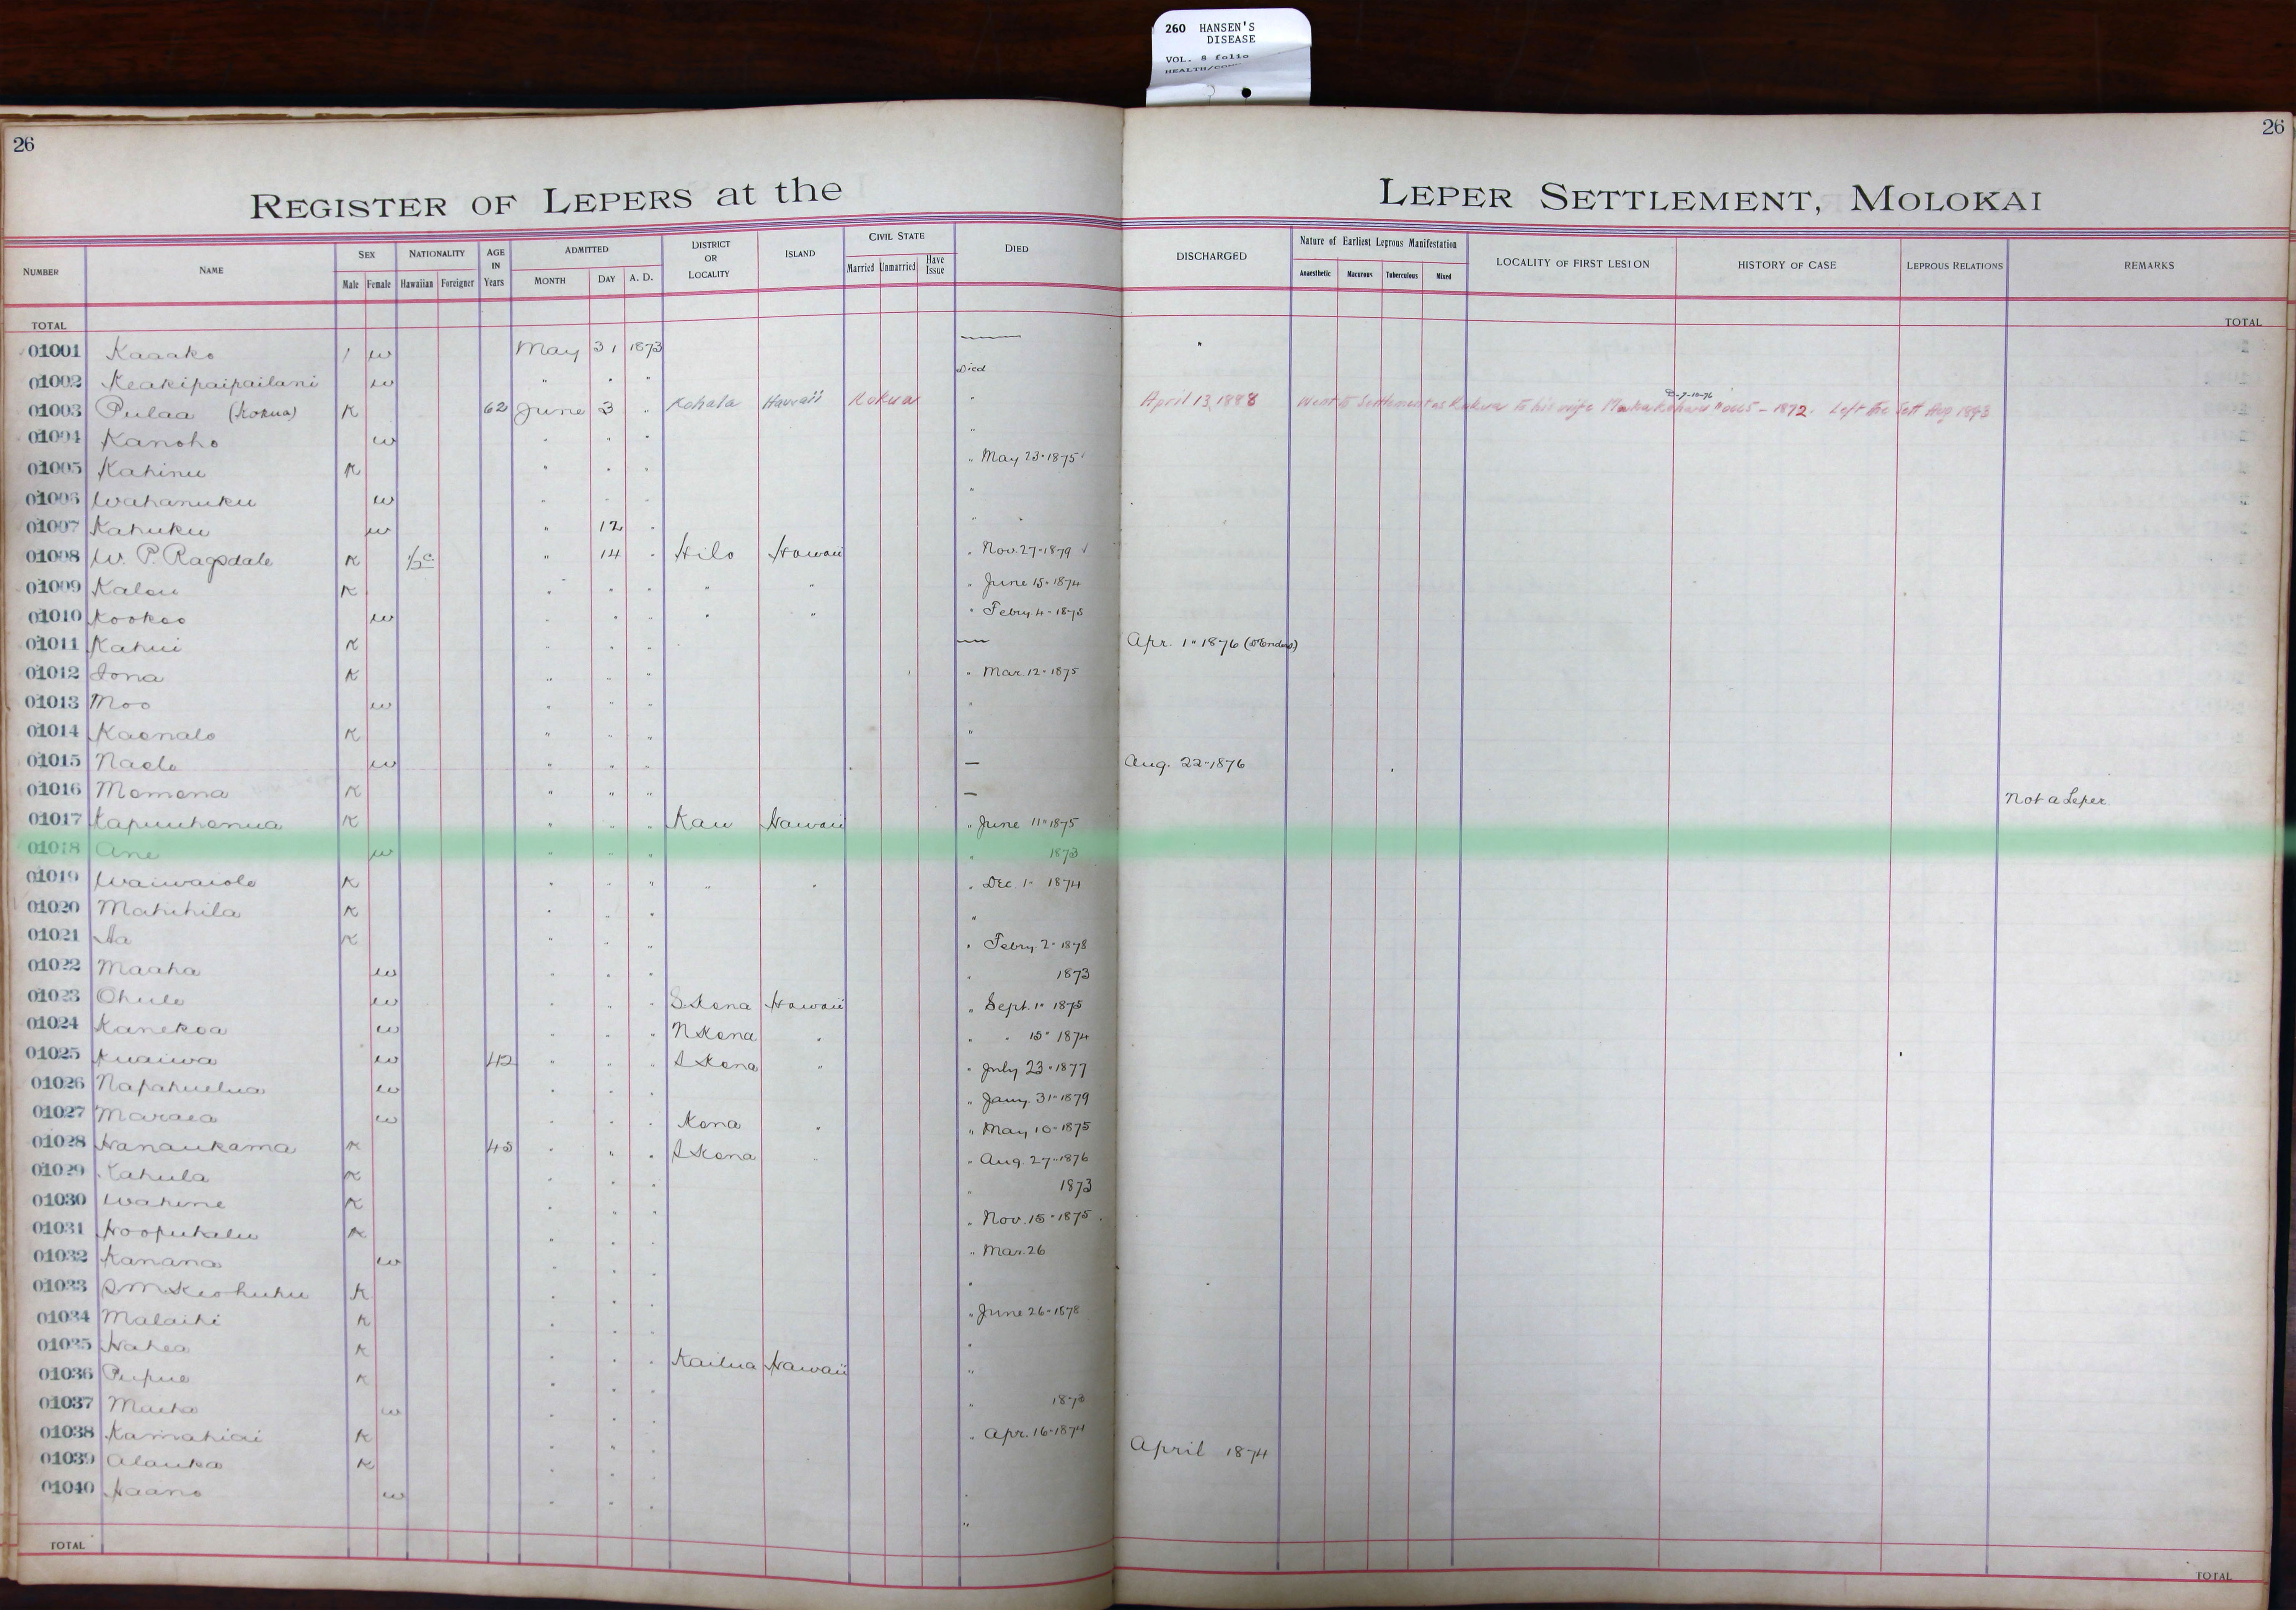 260 HANSEN'S
DISEASE
VOL. 8 folio
26
26
REGISTER OF LEPERS at the LEPER SETTLEMENT, MOLOKAI
NUMBER NAME SEX Male Female NATIONALITY Hawaiian Foreigner AGE IN Years ADMITTED MONTH DAY A. D. DISTRICT OR LOCALITY ISLAND CIVIL STATE Married Unmarried Have Issue DIED DISCHARGED Nature of Earliest Leprous Manifestation Anaesthetic Macurous Tuberculous Mixed LOCALITY OF FIRST LESION HISTORY OF CASE LEPROUS RELATIONS REMARKS
TOTAL TOTAL
01001 Kaaako w May 31 1873
01002 Keakipaipailani w " " " Died
01003 Pulaa (Kokua) K 62 June 3 " Kohala Hawaii Kokua " April 13, 1888 Went to Settlement as Kokua to his wife - 1872. Left the Sett Aug 1893
01004 Kanoho w " " " "
01005 Kahinu K " " " " May 23 · 1875
01006 Wahanuku w " " " "
01007 Kahuku w " 12 " "
01008 W. P. Ragsdale K 1/2 c " 14 " Hilo Hawaii " Nov. 27 · 1879
01009 Kalou K " " " " " " June 15 · 1874
01010 Kookoo w " " " " " " Febry 4 - 1875
01011 Kahui K " " " — Apr. 1 " 1876
01012 Iona K " " " " Mar. 12 · 1875
01013 Moo w " " " "
01014 Kaonalo K " " " "
01015 Naelo w " " " — Aug. 22 - 1876
01016 Momona K " " " — Not a Leper
01017 Kapuuhonua K " " " Kau Hawaii " June 11 " 1875
01018 Ane w " " " " 1873
01019 Waiwaiole K " " " " " " Dec. 1 - 1874
01020 Mahihila K " " " "
01021 Aa K " " " " Febry. 2 · 1878
01022 Maaha w " " " " 1873
01023 Ohule w " " " S. Kona Hawaii " Sept. 1 · 1875
01024 Kanekoa w " " " N Kona " " " 15 " 1874
01025 Kuaiwa w 42 " " " S Kona " " July 23 · 1877
01026 Napahuelua w " " " " Jany. 31 · 1879
01027 Maraea w " " " Kona " " May 10 - 1875
01028 Hanaukama K 45 " " " S Kona " " Aug. 27 · 1876
01029 Kahula K " " " " 1873
01030 Wahine K " " " " Nov. 15 · 1875
01031 Hoopukalu K " " " " Mar. 26
01032 Kanana w " " " "
01033 S M Keohuhu K " " " " June 26 - 1878
01034 Malaihi K " " " "
01035 Hahea K " " " Kailua Hawaii "
01036 Pupue K " " " " 1873
01037 Maeha w " " " " Apr. 16 - 1874
01038 Kamahiai K " " " April 1874
01039 Alauka K " " " "
01040 Haano w " " " "
TOTAL TOTAL